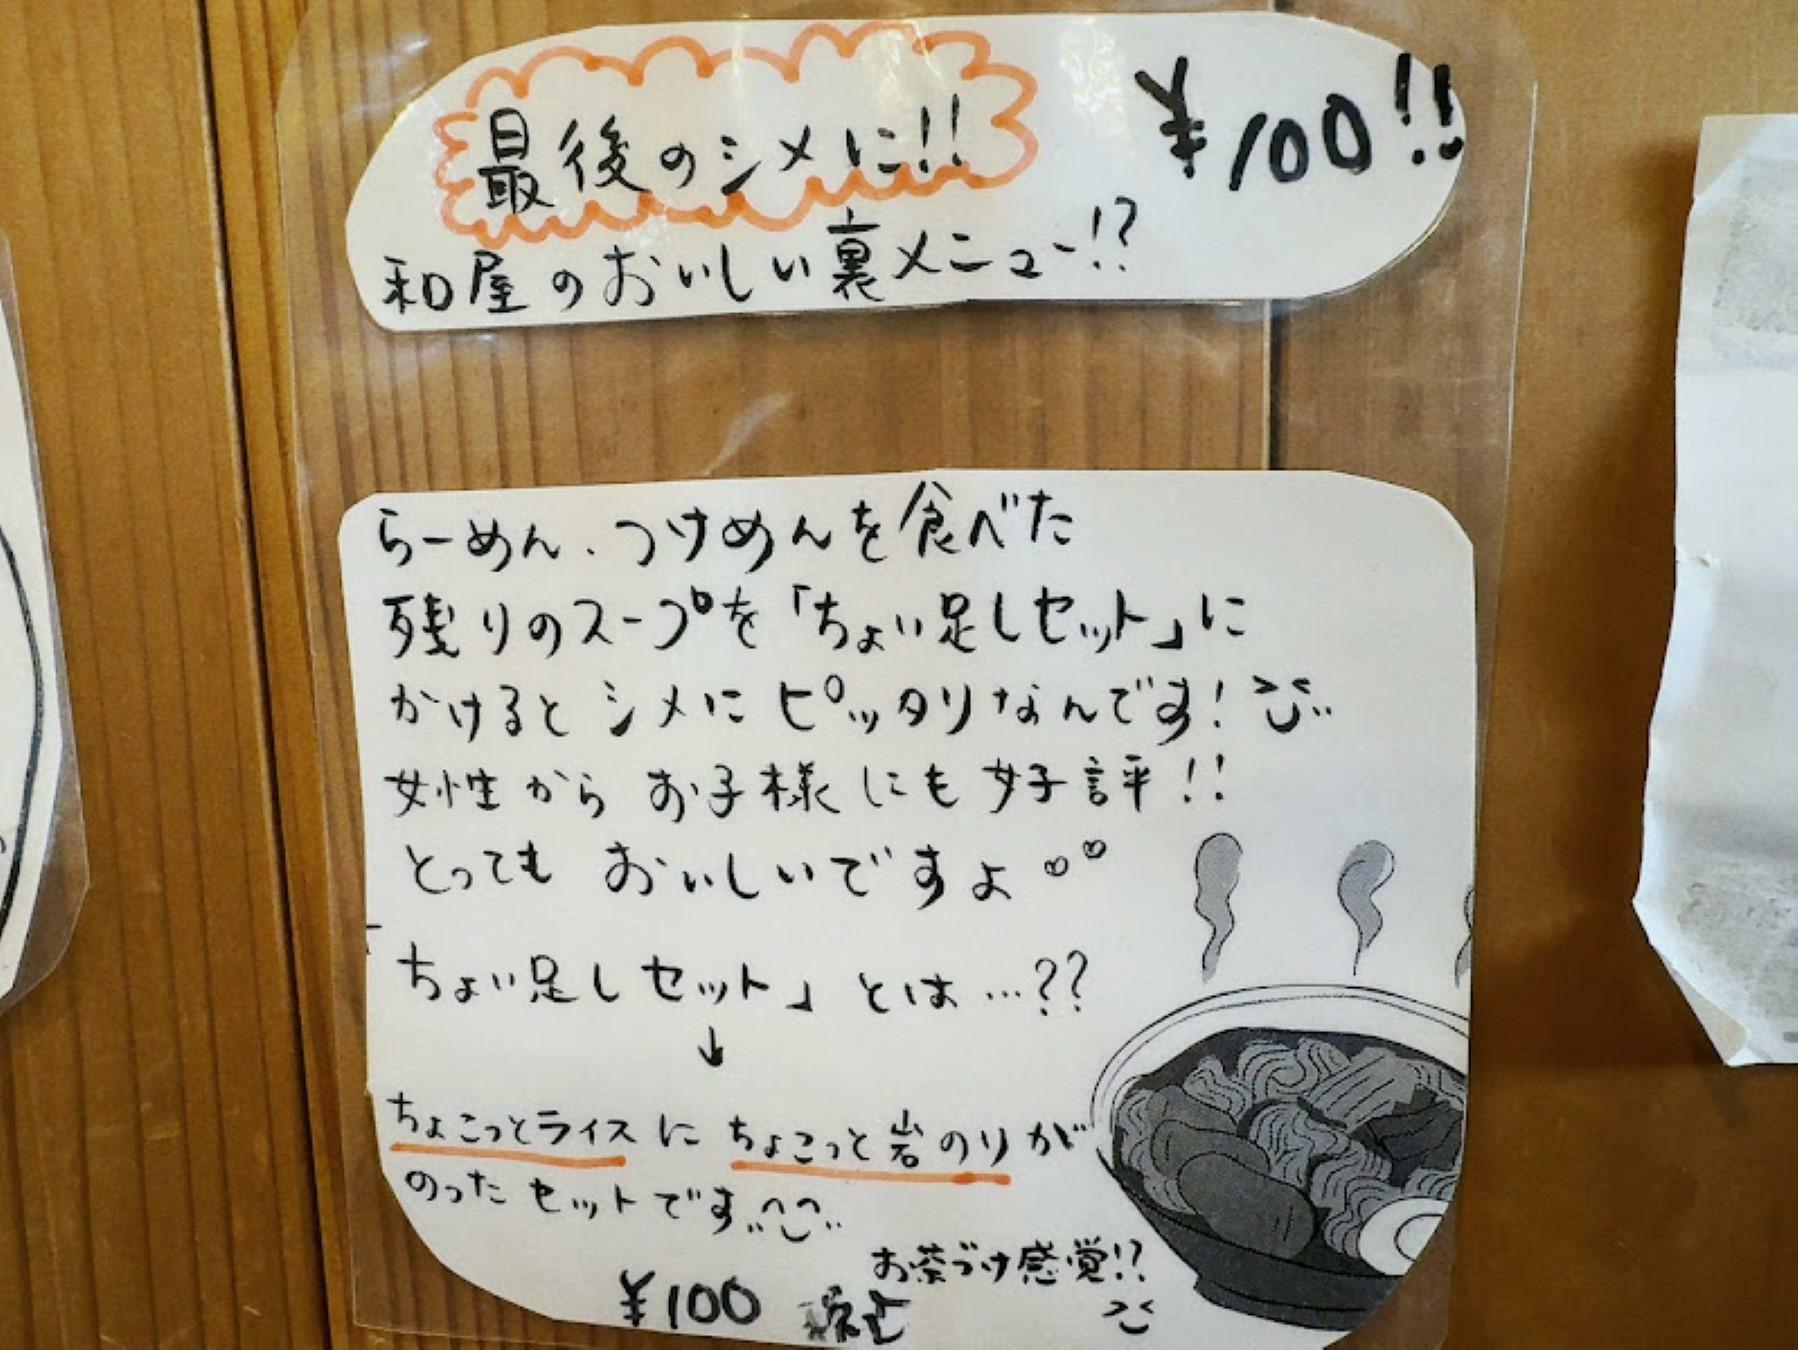 最後のシメに!!
¥100!!
和屋のおいしい裏メニュー!?
らーめん、つけめんを食べた
残りのスープを「ちょい足しセット」に
かけるとシメにピッタリなんです!
女性からお子様にも好評!!
とってもおいしいですよ♡♡
「ちょい足しセット」とは…??
↓
ちょこっとライスにちょこっと岩のりが
のったセットです
お茶づけ感覚!?
¥100